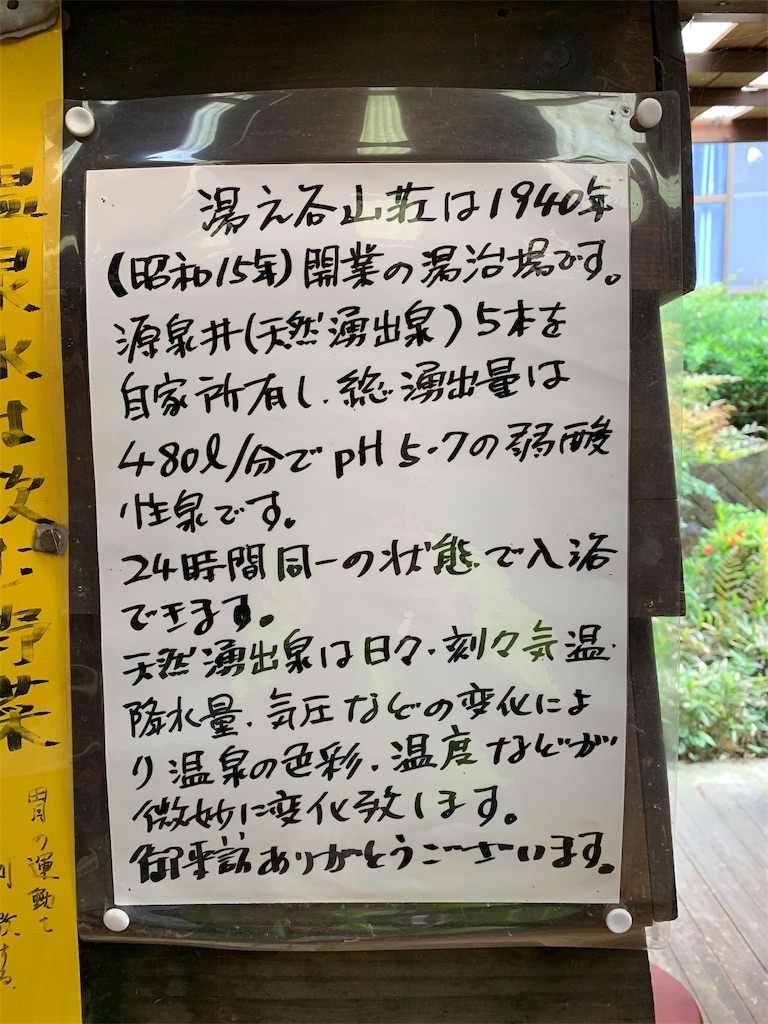 湯之谷山荘は1940年
(昭和15年)開業の湯治場です。
源泉井(天然湧出泉)5本を
自家所有し、総湧出量は
480l/分でpH5.7の弱酸
性泉です。
24時間同一の状態で入浴
できます。
天然湧出泉は日々、刻々気温、
降水量、気圧などの変化によ
り温泉の色彩、温度などが
微妙に変化致します。
御来訪ありがとうございます。
温泉水は炊た野菜
胃の運動を